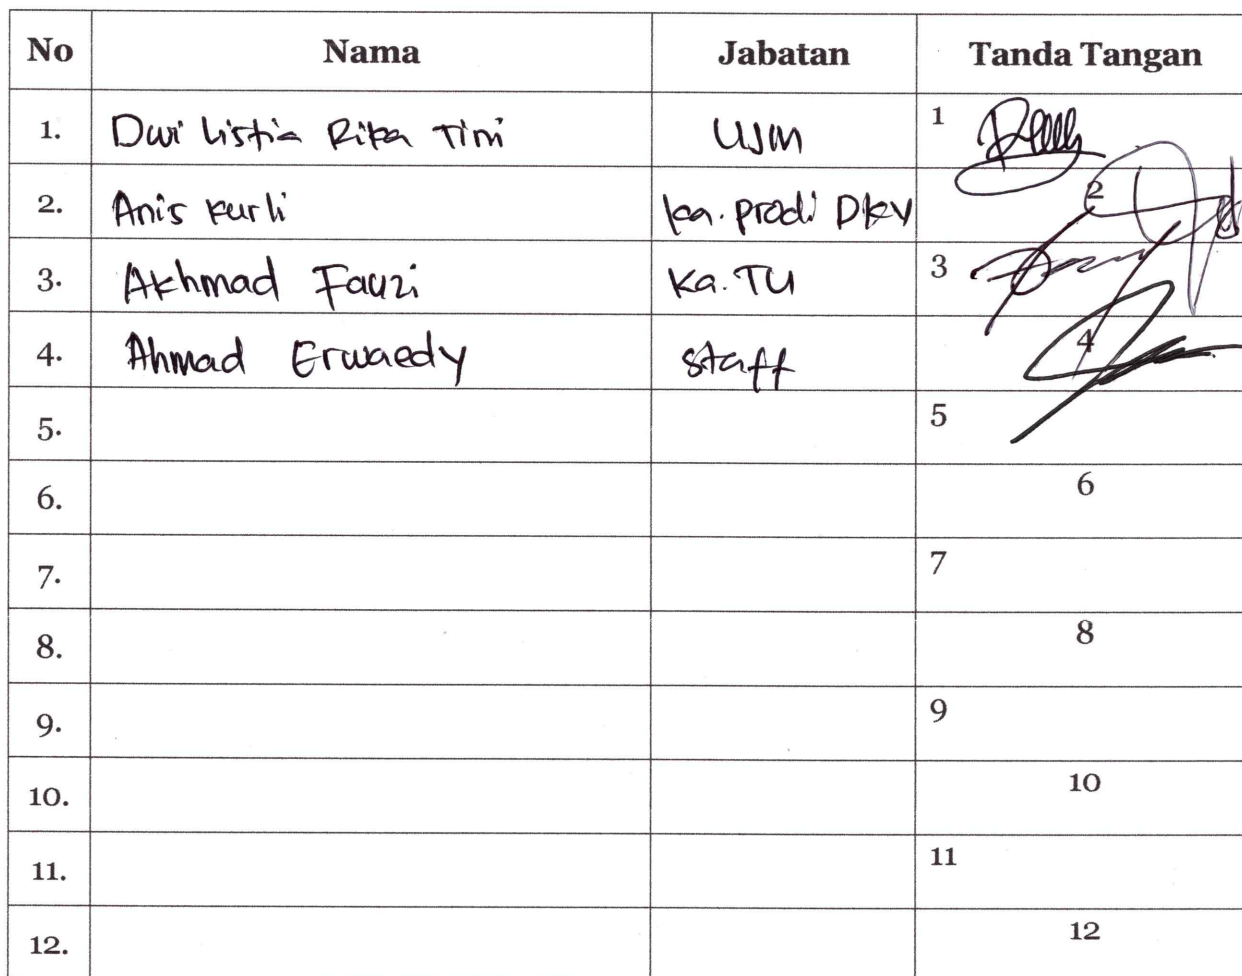 No Nama Jabatan Tanda Tangan
1. Dwi Listia Rika Tini UJM 1
2. Anis Kurli ka. prodi DKV 2
3. Akhmad Fauzi Ka. TU 3
4. Ahmad Erwaedy staff 4
5. 5
6. 6
7. 7
8. 8
9. 9
10. 10
11. 11
12. 12